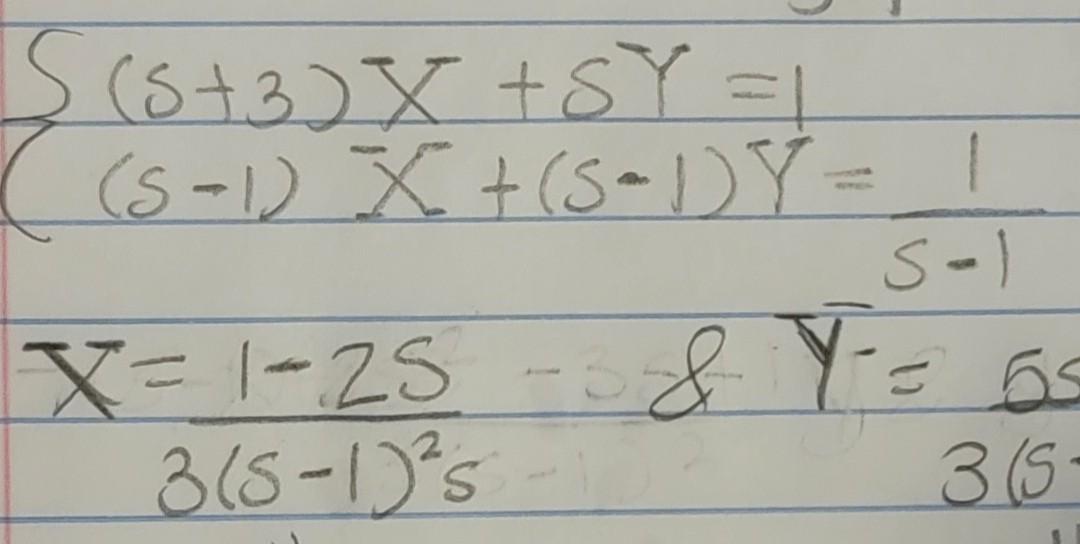 { (s+3)X + sY = 1
(s-1) X + (s-1)Y = 1/(s-1)
X = (1-2s)/(3(s-1)²s) & Y = 5s/3(s-